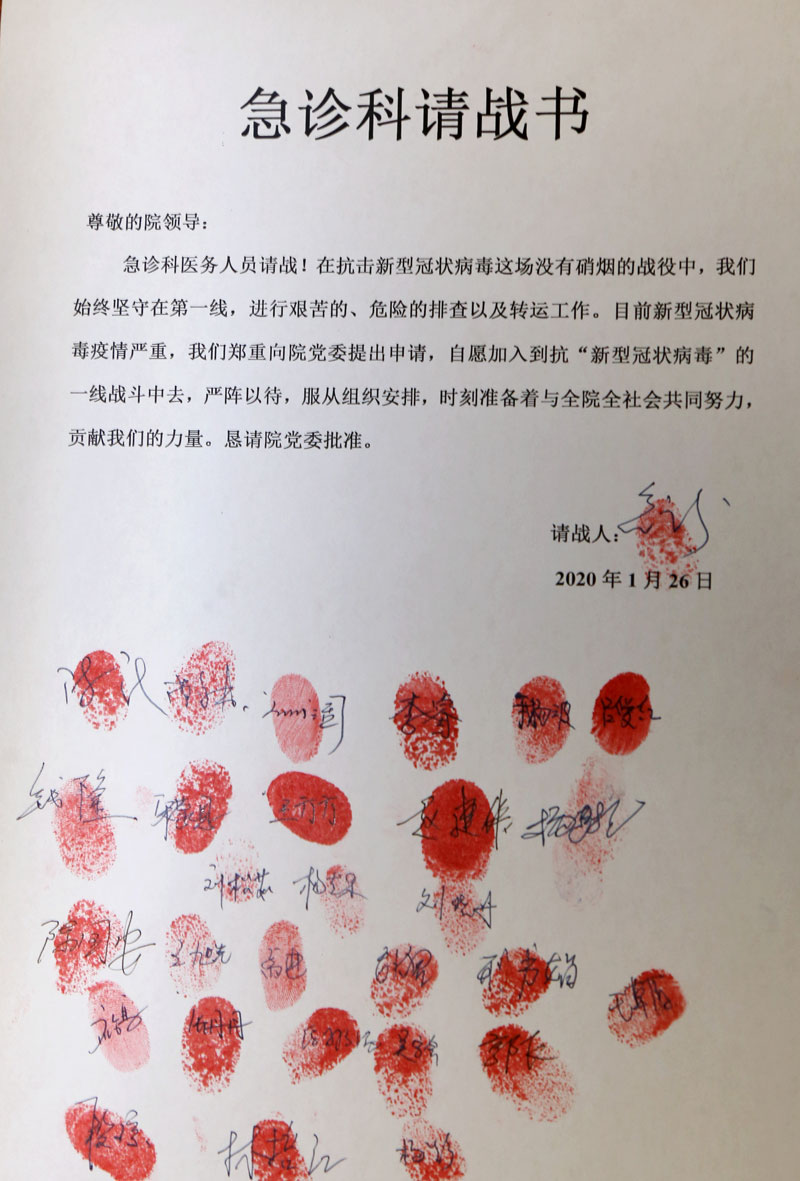 急诊科请战书
尊敬的院领导：
急诊科医务人员请战！在抗击新型冠状病毒这场没有硝烟的战役中，我们
始终坚守在第一线，进行艰苦的、危险的排查以及转运工作。目前新型冠状病
毒疫情严重，我们郑重向院党委提出申请，自愿加入到抗“新型冠状病毒”的
一线战斗中去，严阵以待，服从组织安排，时刻准备着与全院全社会共同努力，
贡献我们的力量。恳请院党委批准。
请战人：
2020 年 1 月 26 日
李睿
钱隆 王打打 赵建伟
刘松茹 刘晓丹
陈国安 王旭光 高进
任丹丹 郭庆
林哲江